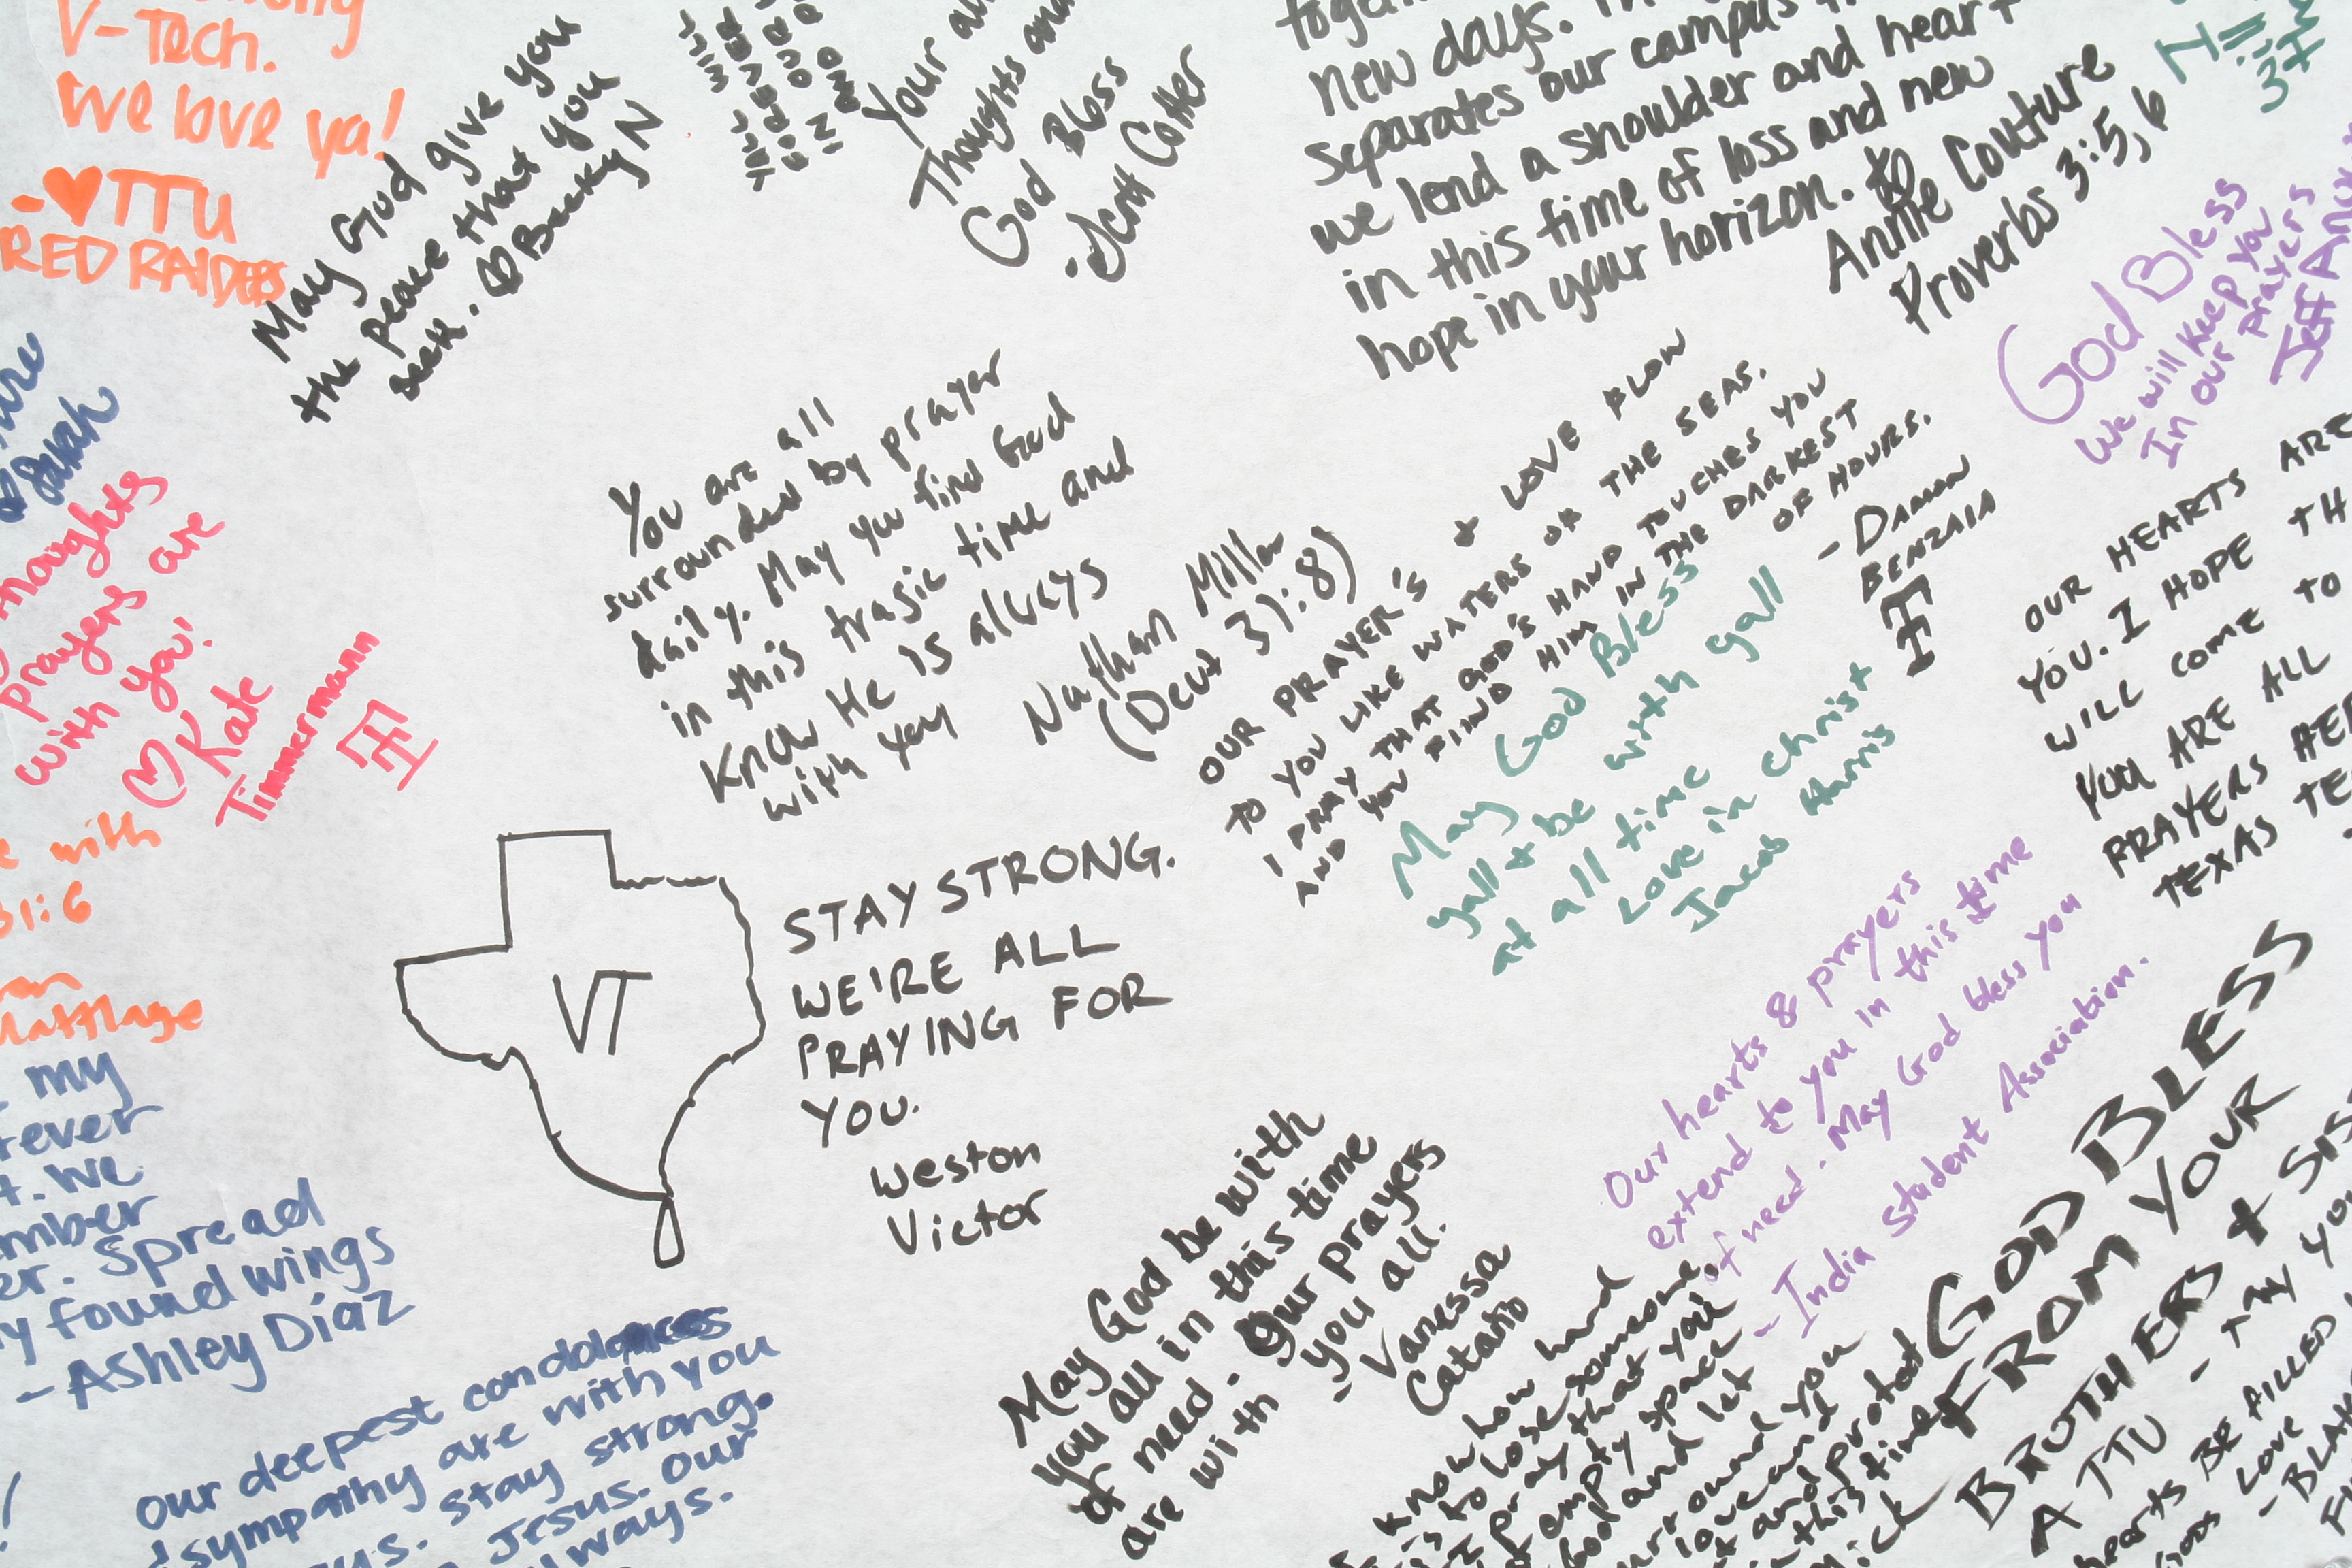 V-Tech.
We love ya!
-♥TTU
RED RAIDERS
May God give you
the peace that you
seek. ♡ Becky N
Y'ALL WILL
FOREVER
IN OUR
AND
Your
Thoughts and
God Bless
-Scott Cotter
new days.
separates our campus
we lend a shoulder and heart
in this time of loss and new
hope in your horizon.
Annie Couture
Proverbs 3:5,6
God Bless
We will keep you
In our prayers
Jeff
Sarah
thoughts
prayers are
with you!
♡ Kate
Timmermann
TT
with
31:6
Mattlage
You are all
surrounded by prayer
daily. May you find God
in this tragic time and
Know He is always
with you
Nathan Miller
(Deut 31:8)
OUR PRAYER'S + LOVE FLOW
TO YOU LIKE WATERS OF THE SEAS.
I PRAY THAT GOD'S HAND TOUCHES YOU
AND YOU FIND HIM IN THE DARKEST
OF HOURS.
-DAMON
BENZAIA
TT
May God Bless
yall + be with yall
at all time
Love in christ
Jacob Harris
OUR HEARTS ARE
YOU. I HOPE TH
WILL COME TO
YOU ARE ALL
PRAYERS HE
TEXAS TE
VT
STAY STRONG.
WE'RE ALL
PRAYING FOR
YOU.
Weston
Victor
Our hearts & prayers
extend to you in this time
of need. May God bless you
-India Student Association.
my
We
Spread
found wings
-Ashley Díaz
our deepest condolences
sympathy are with you
stay strong.
Jesus. Our
May God be with
you all in this time
of need. Our prayers
are with you all.
-Vanessa
Catano
Know how hard
to lose someone.
I pray that you
empty space
and let
surround you
love and
and protect
this time
GOD BLESS
FROM YOUR
BROTHERS + SIS
A TTU
- MAY YO
hearts BE FILLED
LOVE